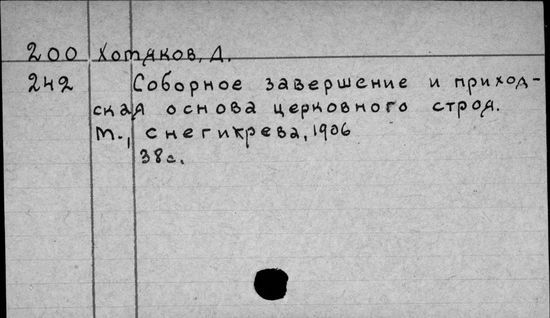 200 Хомяков, Д.
242 Соборное завершение и приход-
ская основа церковного строя.
М., Снегикрева, 1906
38с.